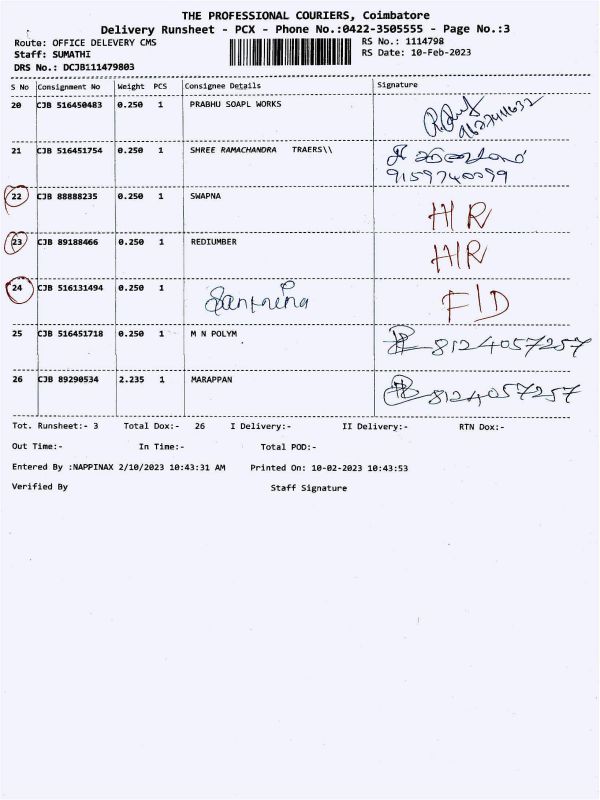 THE PROFESSIONAL COURIERS, Coimbatore
Delivery Runsheet - PCX - Phone No.:0422-3505555 - Page No.:3
Route: OFFICE DELEVERY CMS RS No.: 1114798
Staff: SUMATHI RS Date: 10-Feb-2023
DRS No.: DCJB111479803
S No Consignment No Weight PCS Consignee Details Signature
20 CJB 516450483 0.250 1 PRABHU SOAPL WORKS
21 CJB 516451754 0.250 1 SHREE RAMACHANDRA TRAERS\\
9159740099
22 CJB 88888235 0.250 1 SWAPNA H|R
23 CJB 89188466 0.250 1 REDIUMBER H|R
24 CJB 516131494 0.250 1 F|D
25 CJB 516451718 0.250 1 M N POLYM 8124057257
26 CJB 89290534 2.235 1 MARAPPAN 8124057257
Tot. Runsheet:- 3 Total Dox:- 26 I Delivery:- II Delivery:- RTN Dox:-
Out Time:- In Time:- Total POD:-
Entered By :NAPPINAX 2/10/2023 10:43:31 AM Printed On: 10-02-2023 10:43:53
Verified By Staff Signature